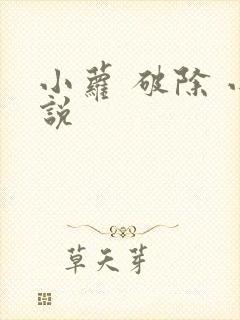 小蘿 破除
說
草天芽